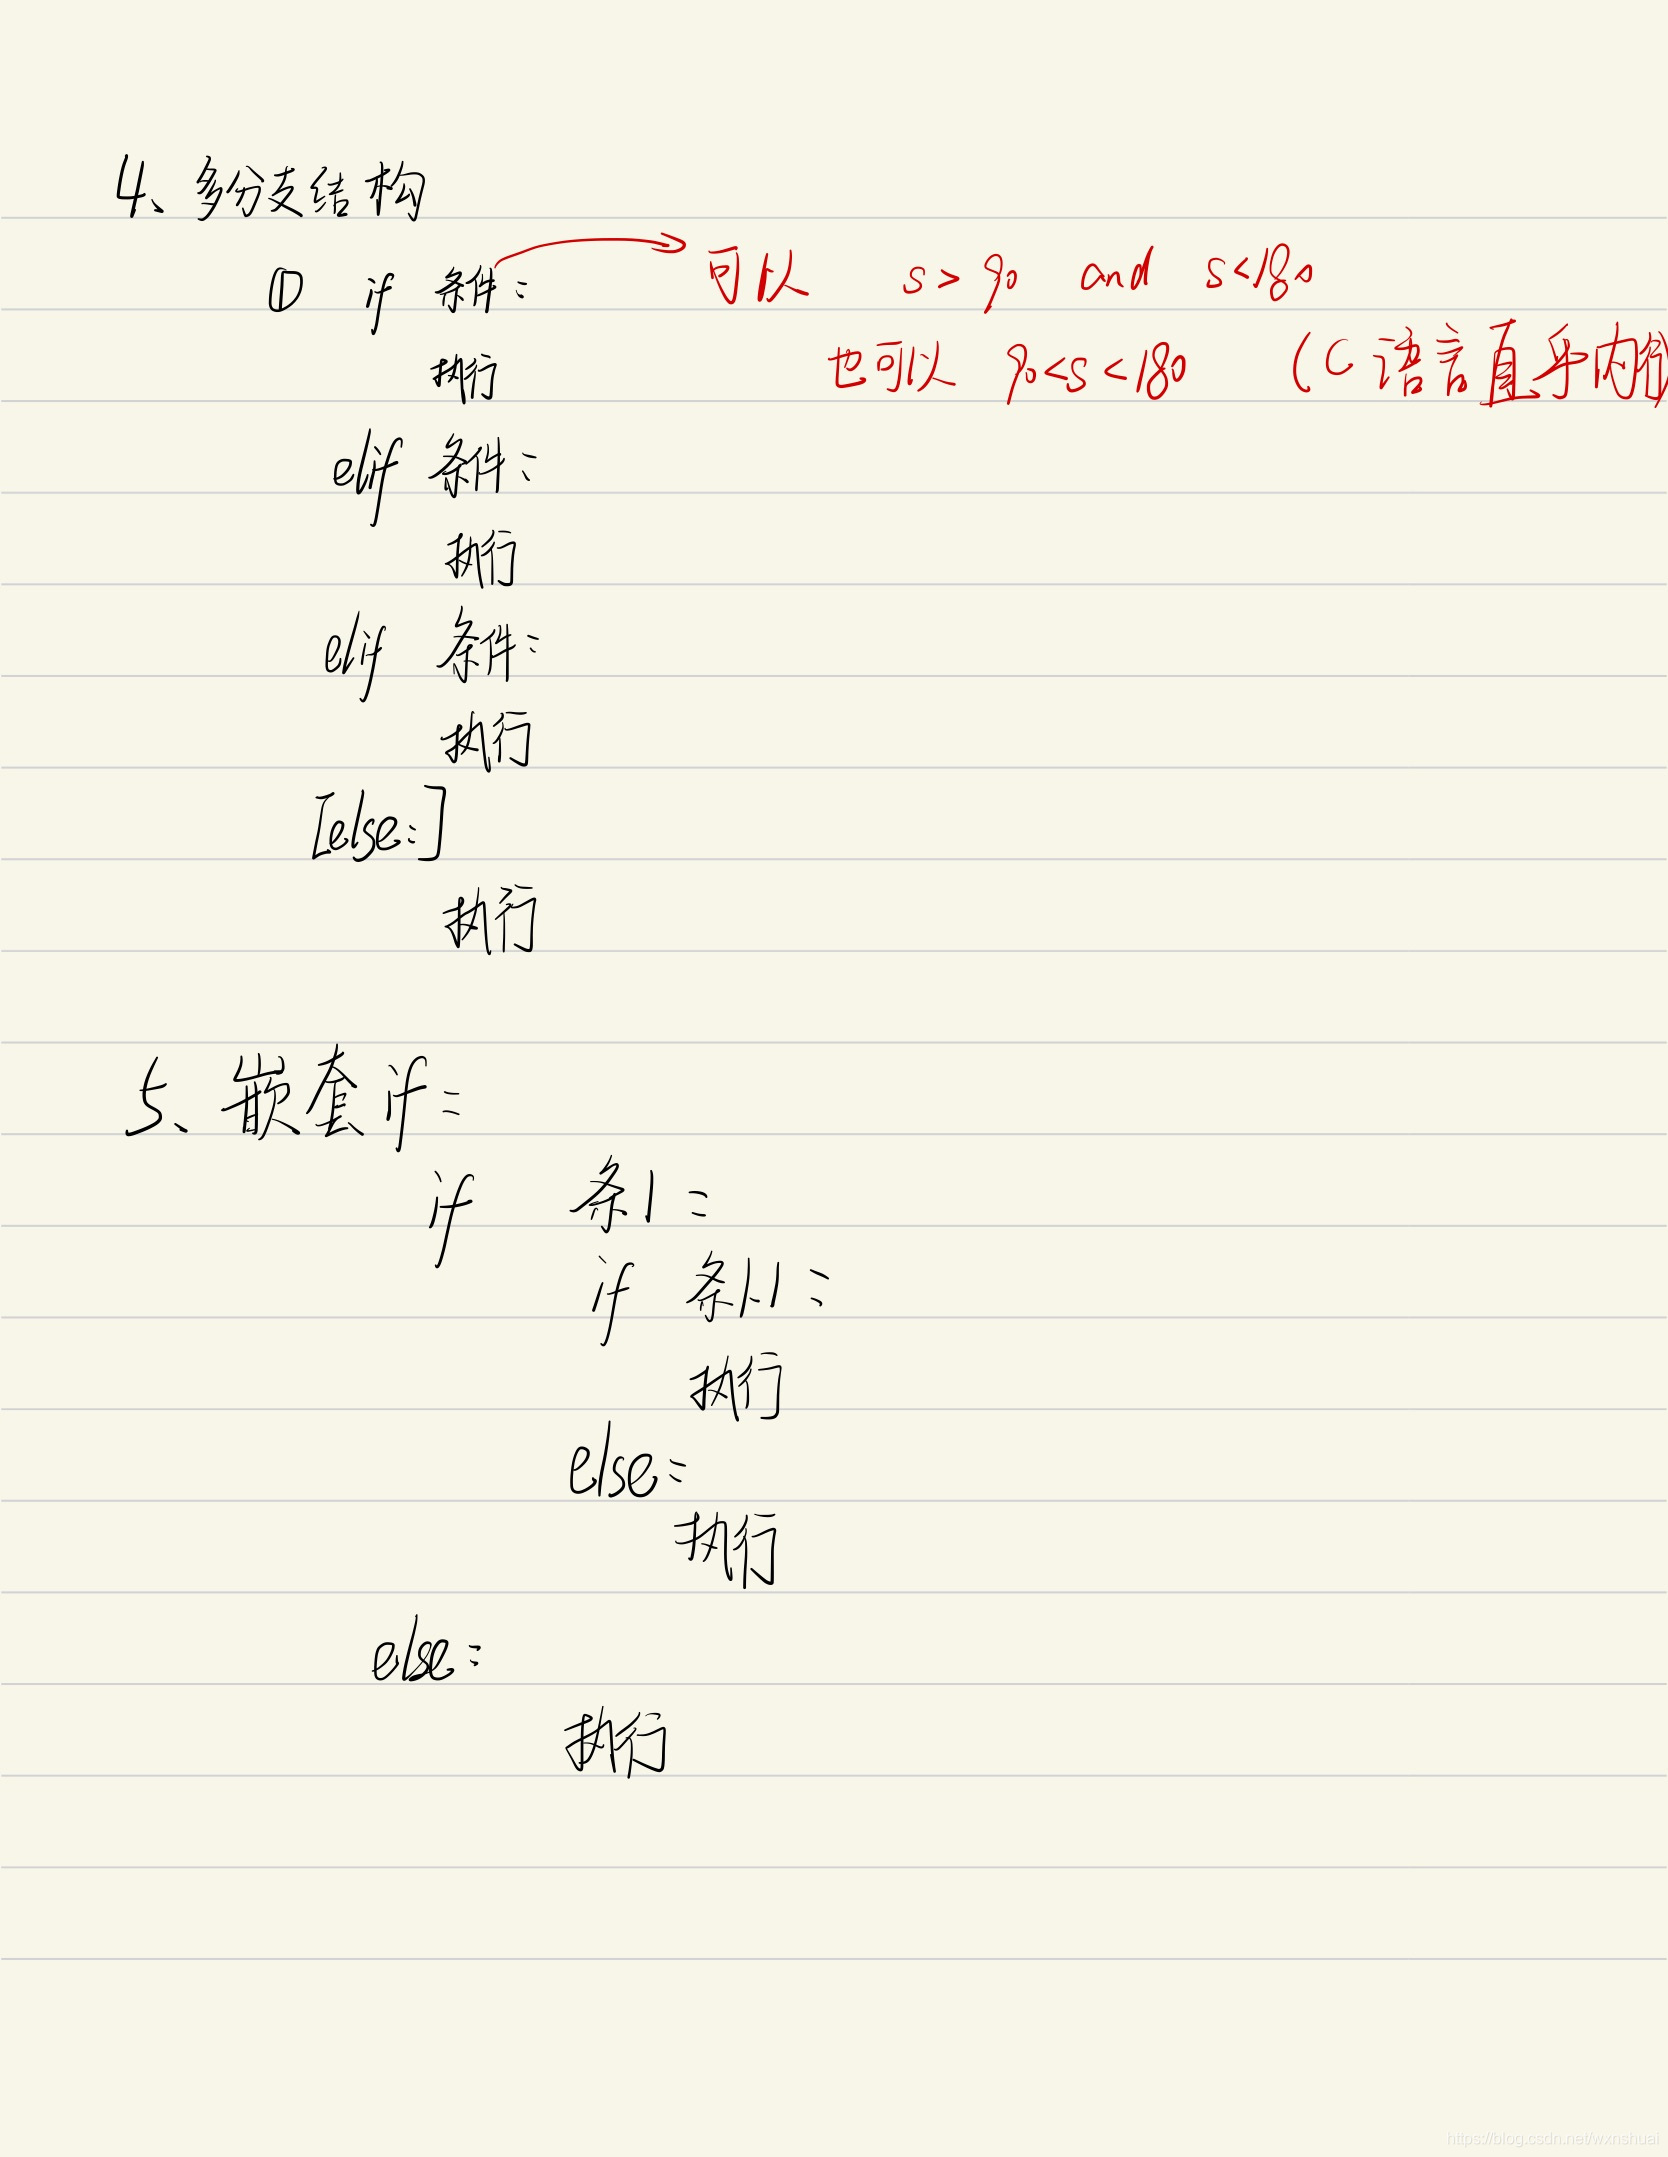 4、多分支结构
① if 条件: 可以 s>90 and s<180
执行 也可以 90<s<180 (C语言直乎内行)
elif 条件:
执行
elif 条件:
执行
[else:]
执行
5、嵌套if:
if 条1:
if 条1.1:
执行
else:
执行
else:
执行
https://blog.csdn.net/wxnshuai